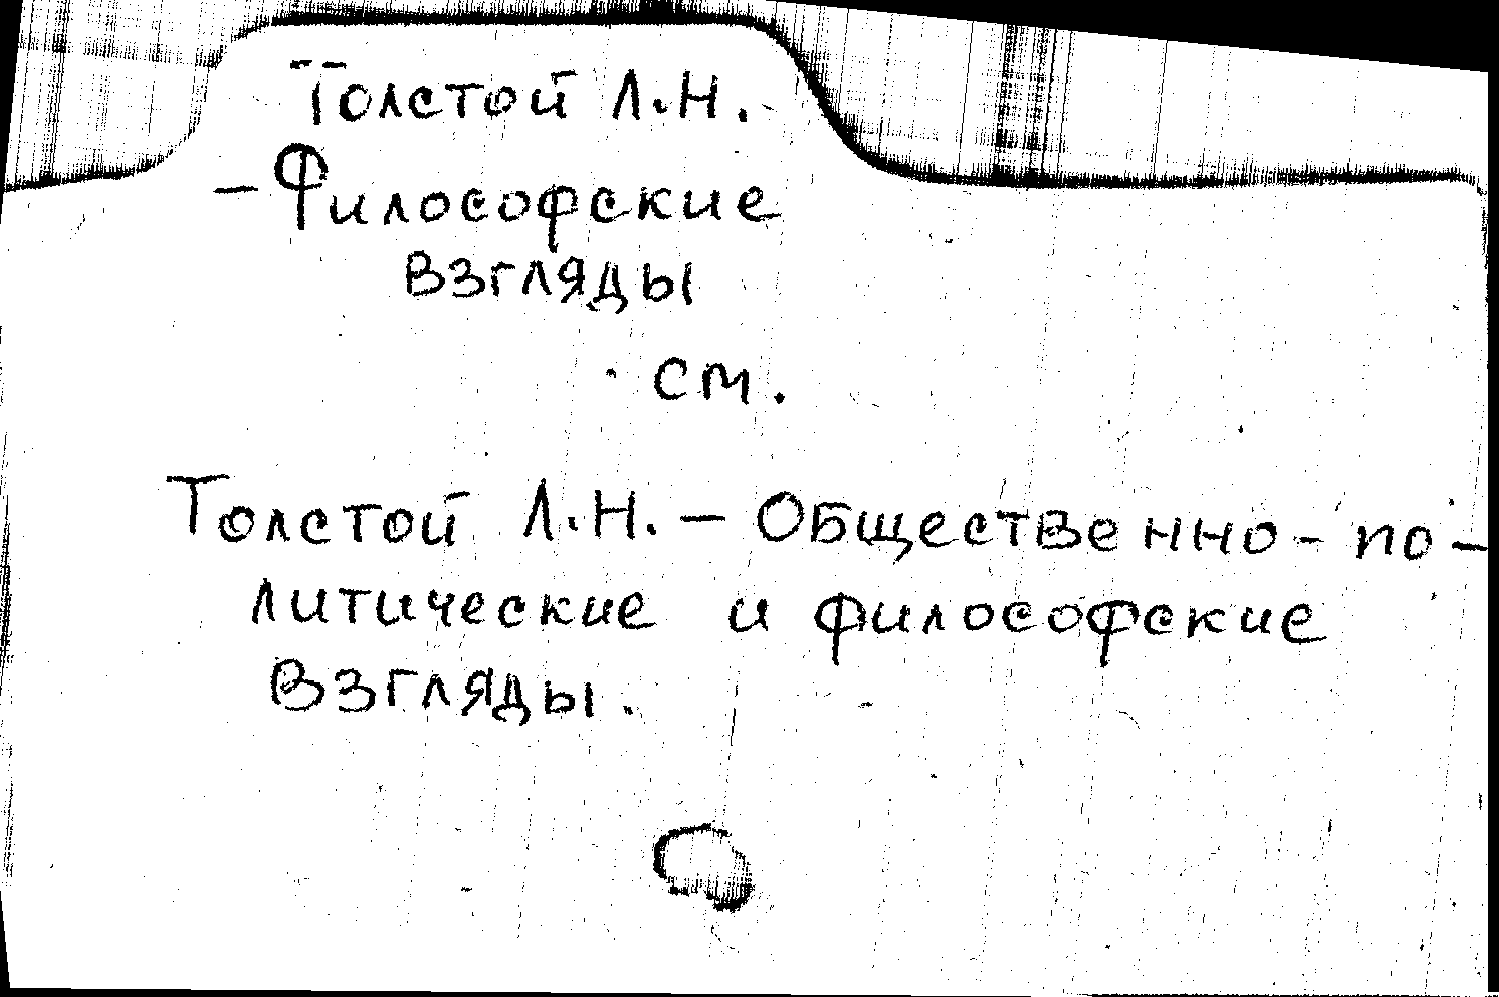 Толстой Л.Н.
– Философские
взгляды
см.
Толстой Л.Н. – Общественно-по-
литические и философские
взгляды.